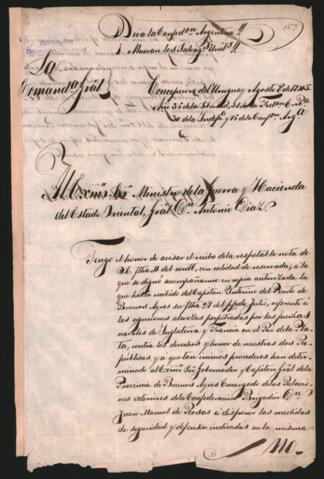 Viva la Confedn. Argentina!!
Mueran los Salvages Units.!!
157
La
Comanda. Gral.
Concepcion del Uruguay Agosto 2 de 1845
Año 36 de la Libertad, 31 de la
30 de la Indepa. y 16 de la Confon. Arga.
Al Exmo. Sor. Ministro de la Guerra y Hacienda
del Estado Oriental, Gral. Dn. Antonio Diaz.
Tengo el honor de avisar el recibo de la respetable nota de
V.E. fha. 11 del corrte., con calidad de reservada, a la
que se dignó acompañarme en copia autorizada, la
que habia recibido del Capitan Interino del Puerto de
Buenos Ayres su fha. 28 del ppdo. Julio, referente á
las agresiones alevosas perpetradas por las fuerzas
navales de Inglaterra y Francia en el Rio de la Pla-
ta, contra los derechos y honor de nuestras dos Re-
públicas, y á que tan inicuos procederes, han deter-
minado al Exmo. Sor. Gobernador y Capitan Gral. de la
Provincia de Buenos Ayres Encargado de las Relacio-
nes exteriores de la Confederacion Brigadier Dn.
Juan Manuel de Rosas á disponer las medidas
de seguridad y defensa indicadas en la misma